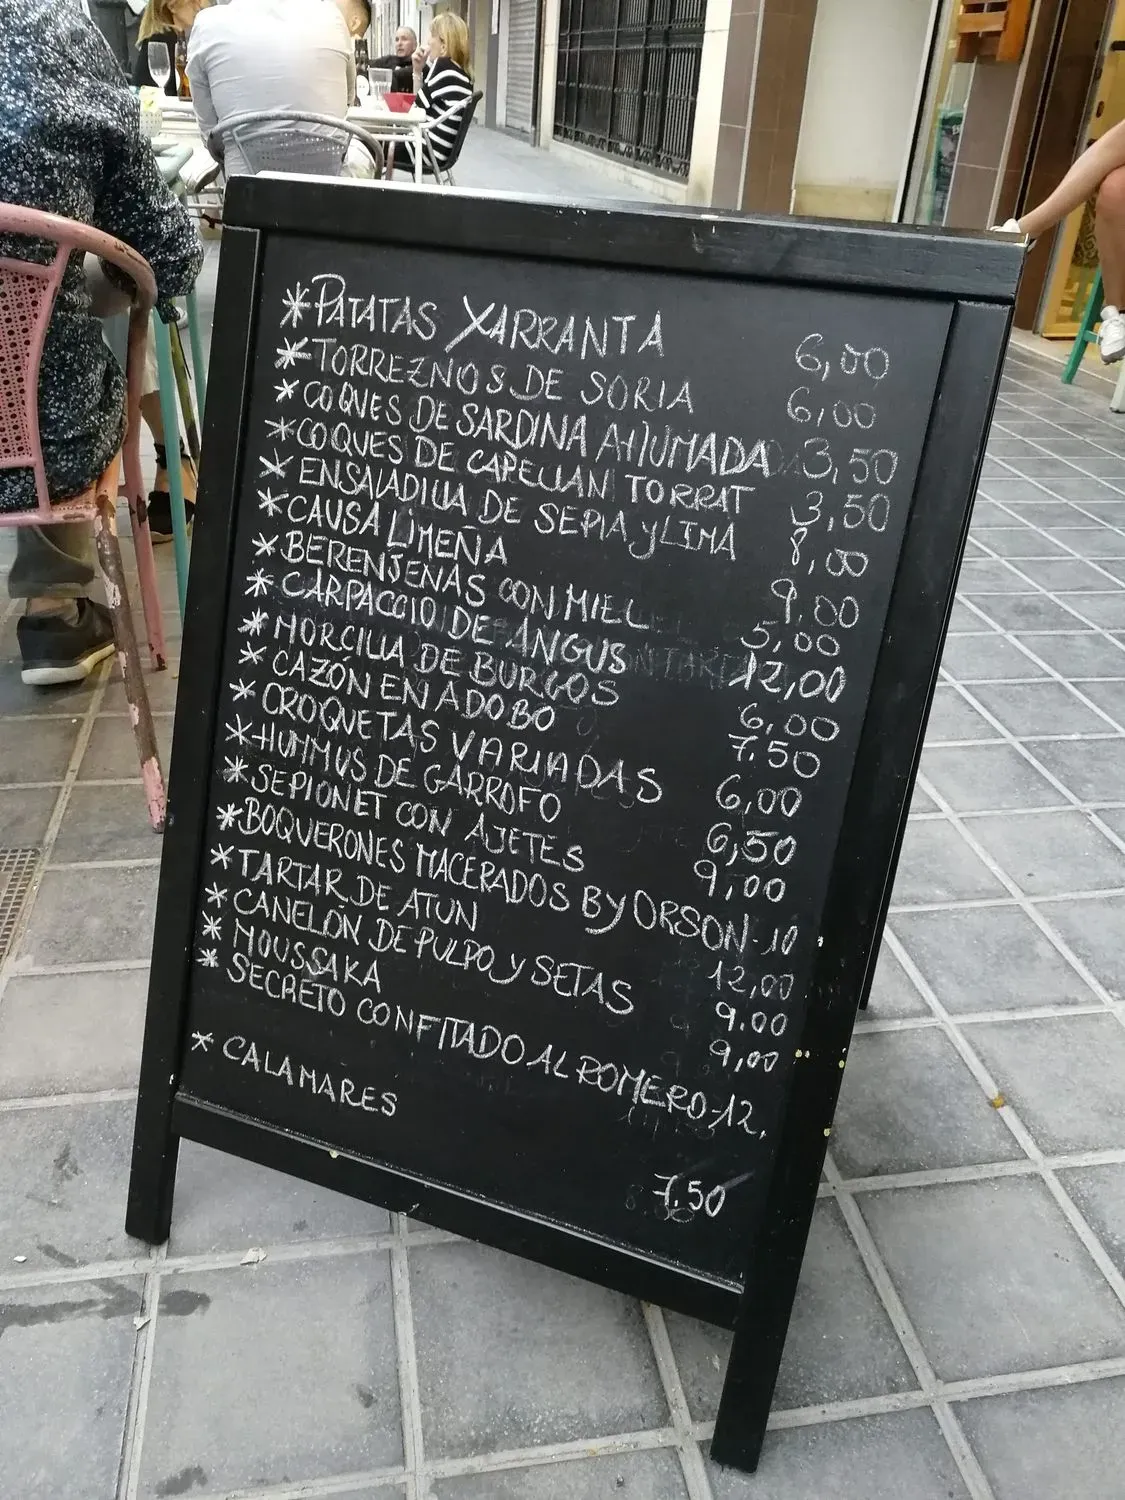 * PATATAS XARRANTA 6,00
* TORREZNOS DE SORIA 6,00
* COQUES DE SARDINA AHUMADA 3,50
* COQUES DE CAPELLAN TORRAT 3,50
* ENSALADILLA DE SEPIA y LIMA 8,00
* CAUSA LIMEÑA 9.00
* BERENJENAS CON MIEL 5,00
* CARPACCIO DE ANGUS 12,00
* MORCILLA DE BURGOS 6,00
* CAZÓN EN ADOBO 7.50
* CROQUETAS VARIADAS 6,00
* HUMMUS DE GARROFO 6,50
* SEPIONET CON AJETES 9,00
* BOQUERONES MACERADOS By ORSON-10
* TARTAR DE ATUN 12,00
* CANELÓN DE PULPO y SETAS 9.00
* MOUSSAKA 9,00
* SECRETO CONFITADO AL ROMERO-12.
* CALAMARES 7.50